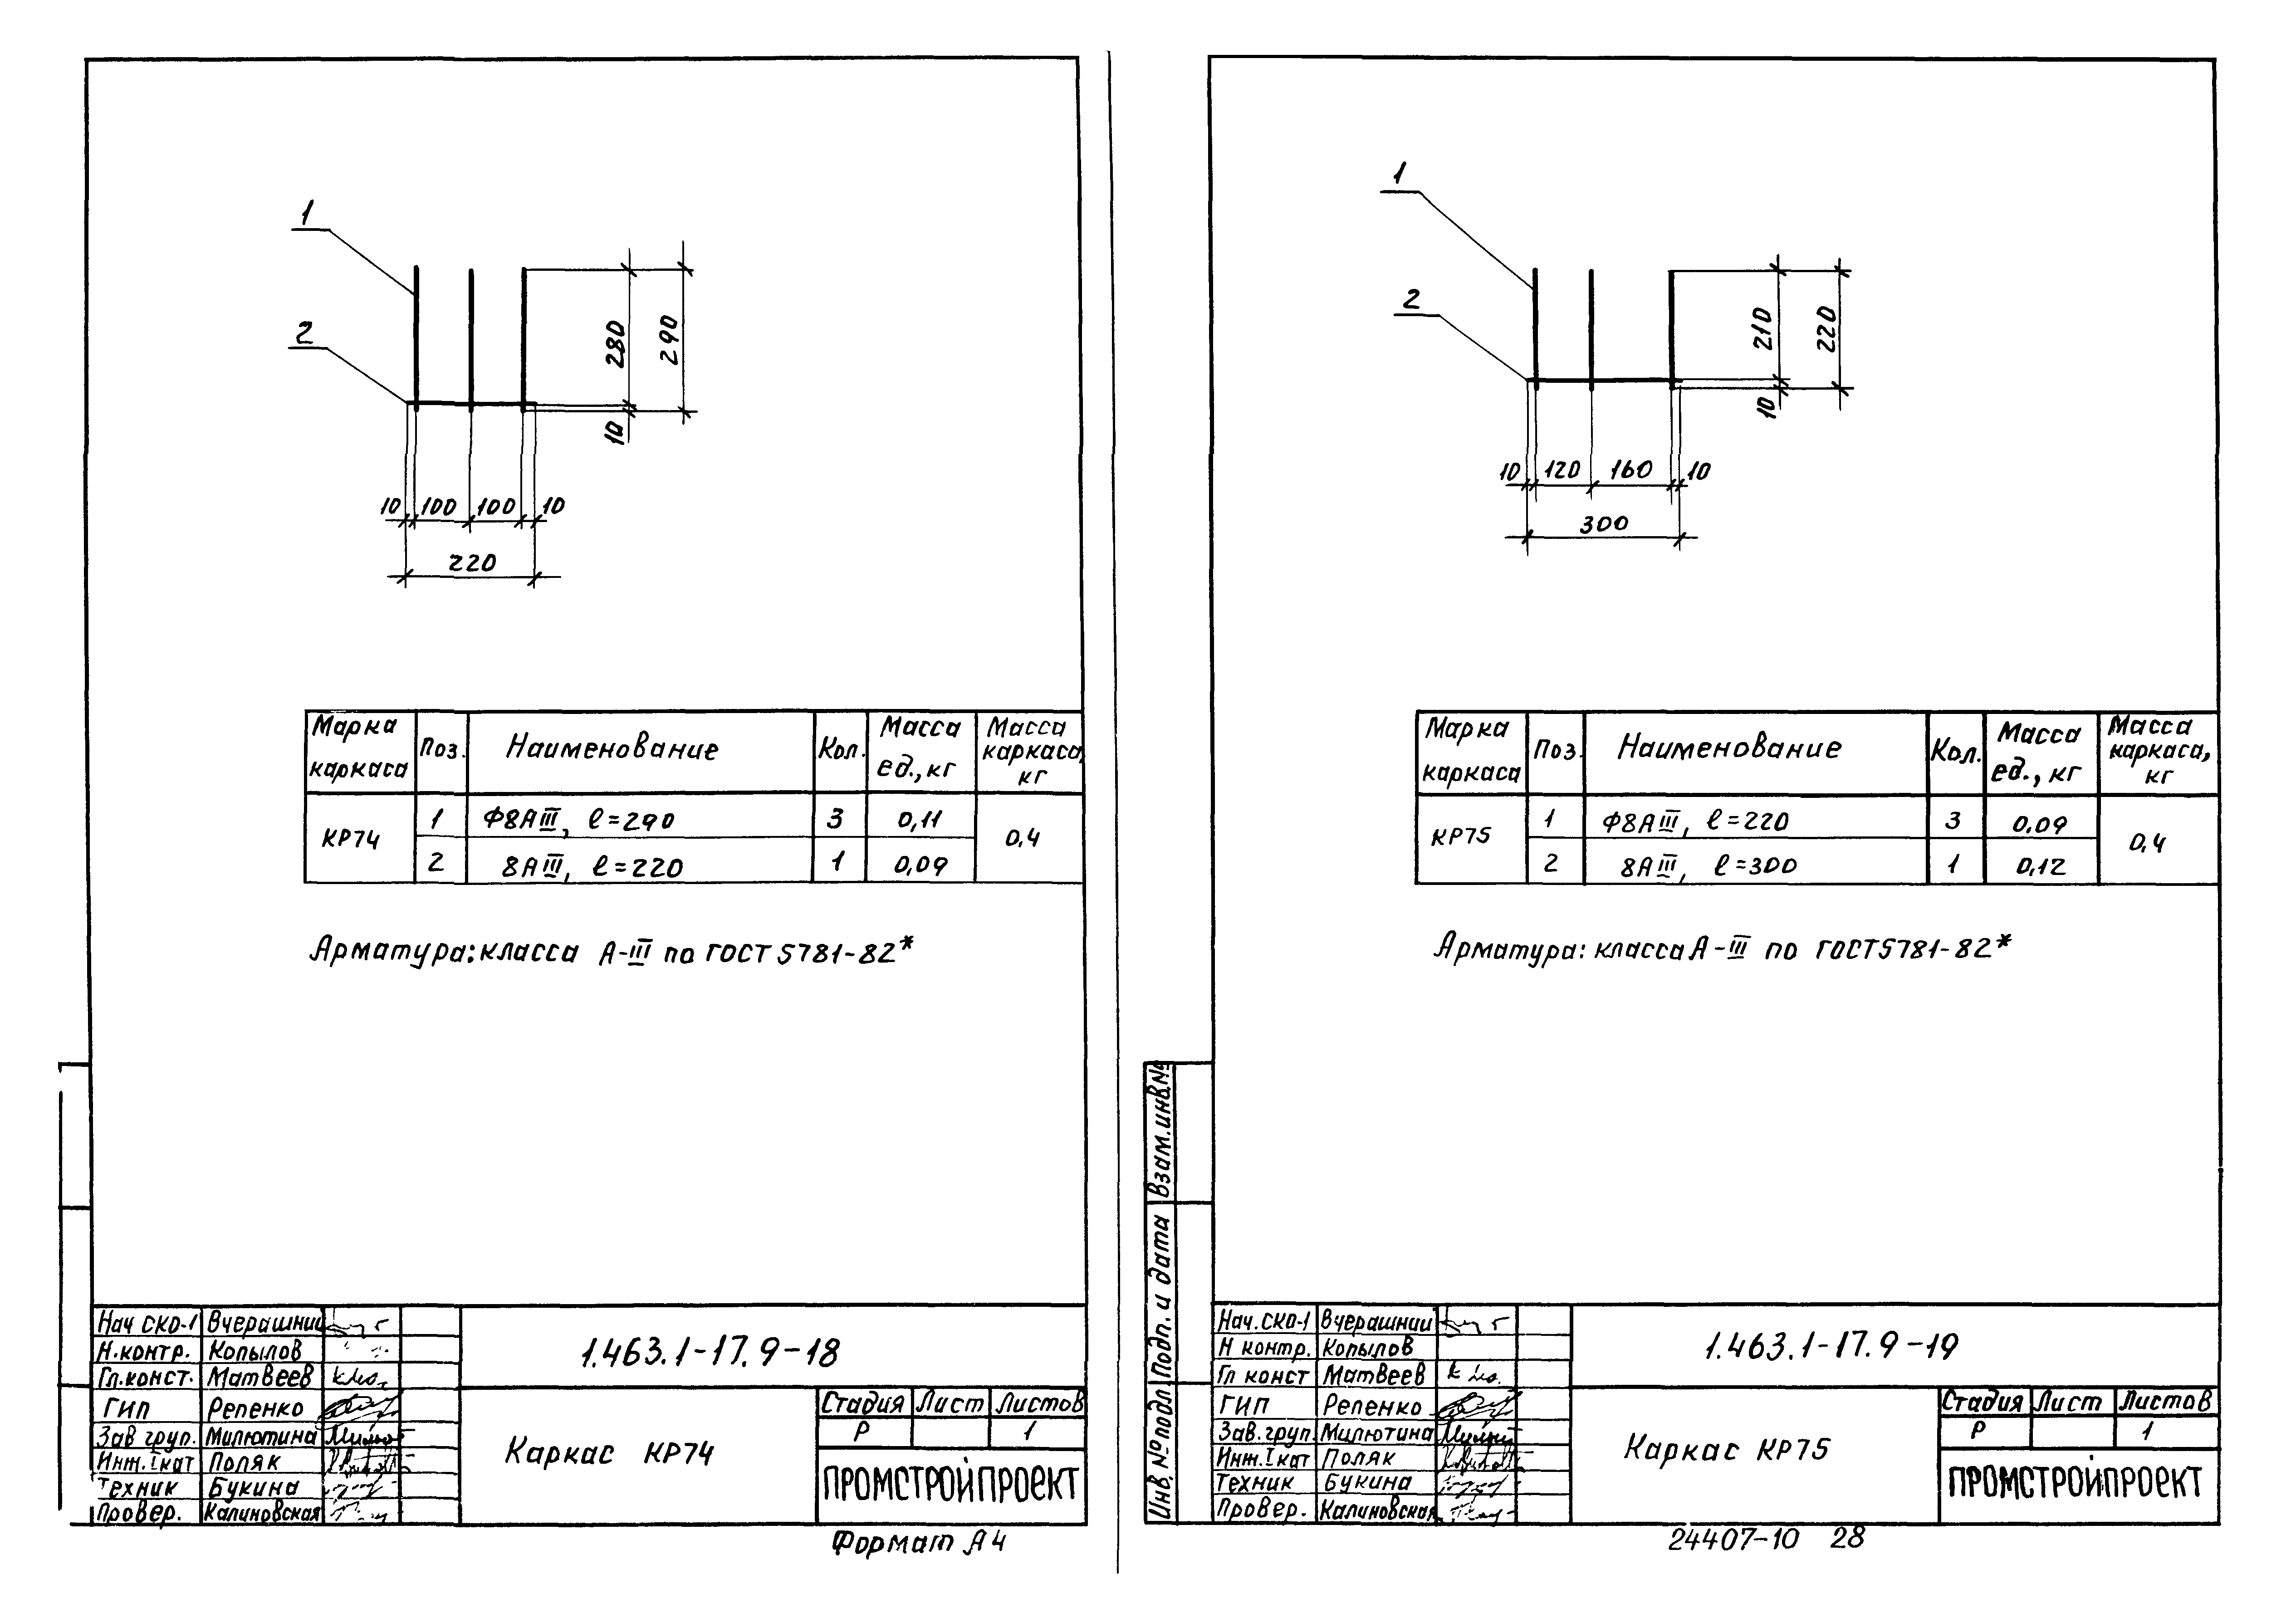 1
2
280
290
10
10 100 100 10
220
Марка каркаса Поз. Наименование Кол. Масса ед., кг Масса каркаса, кг
КР74 1 Ф8АIII, ℓ=290 3 0,11 0,4
2 8АIII, ℓ=220 1 0,09
Арматура: класса А-III по ГОСТ 5781-82*
Нач СКО-1 Вчерашний
Н.контр. Копылов
Гл.конст. Матвеев
ГИП Репенко
Зав груп. Милютина
Инж.I кат Поляк
Техник Букина
Провер. Калиновская
1.463.1-17.9-18
Каркас КР74
Стадия Лист Листов
Р 1
ПРОМСТРОЙПРОЕКТ
Формат А4
1
2
210
220
10
10 120 160 10
300
Марка каркаса Поз. Наименование Кол. Масса ед., кг Масса каркаса, кг
КР75 1 Ф8АIII, ℓ=220 3 0,09 0,4
2 8АIII, ℓ=300 1 0,12
Арматура: класса А-III по ГОСТ 5781-82*
Взам.инв.№
Подп. и дата
Инв.№ подл
Нач.СКО-1 Вчерашний
Н контр. Копылов
Гл конст Матвеев
ГИП Репенко
Зав.груп. Милютина
Инж.I кат Поляк
Техник Букина
Провер. Калиновская
1.463.1-17.9-19
Каркас КР75
Стадия Лист Листов
Р 1
ПРОМСТРОЙПРОЕКТ
24407-10 28